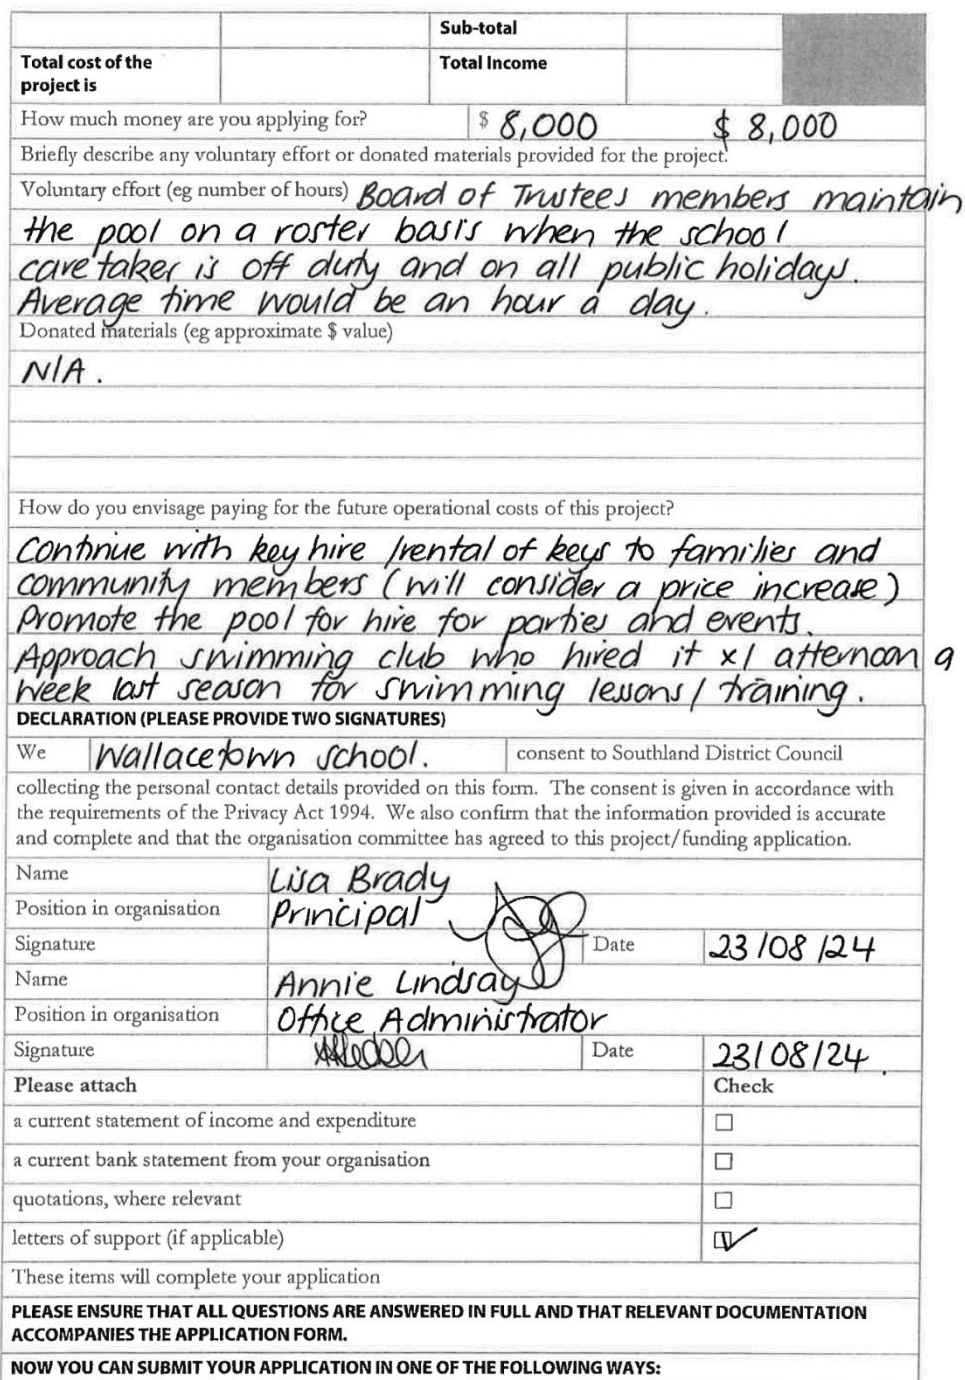 Sub-total
Total cost of the project is Total Income
How much money are you applying for? $ 8,000 $ 8,000
Briefly describe any voluntary effort or donated materials provided for the project.
Voluntary effort (eg number of hours) Board of Trustees members maintain
the pool on a roster basis when the school
caretaker is off duty and on all public holidays.
Average time would be an hour a day.
Donated materials (eg approximate $ value)
N/A.
How do you envisage paying for the future operational costs of this project?
Continue with key hire /rental of keys to families and
community members (will consider a price increase)
Promote the pool for hire for parties and events.
Approach swimming club who hired it x1 afternoon a
week last season for swimming lessons/training.
DECLARATION (PLEASE PROVIDE TWO SIGNATURES)
We Wallacetown School. consent to Southland District Council
collecting the personal contact details provided on this form. The consent is given in accordance with
the requirements of the Privacy Act 1994. We also confirm that the information provided is accurate
and complete and that the organisation committee has agreed to this project/funding application.
Name Lisa Brady
Position in organisation Principal
Signature Date 23/08/24
Name Annie Lindsay
Position in organisation Office Administrator
Signature Date 23/08/24.
Please attach Check
a current statement of income and expenditure
a current bank statement from your organisation
quotations, where relevant
letters of support (if applicable)
These items will complete your application
PLEASE ENSURE THAT ALL QUESTIONS ARE ANSWERED IN FULL AND THAT RELEVANT DOCUMENTATION
ACCOMPANIES THE APPLICATION FORM.
NOW YOU CAN SUBMIT YOUR APPLICATION IN ONE OF THE FOLLOWING WAYS: